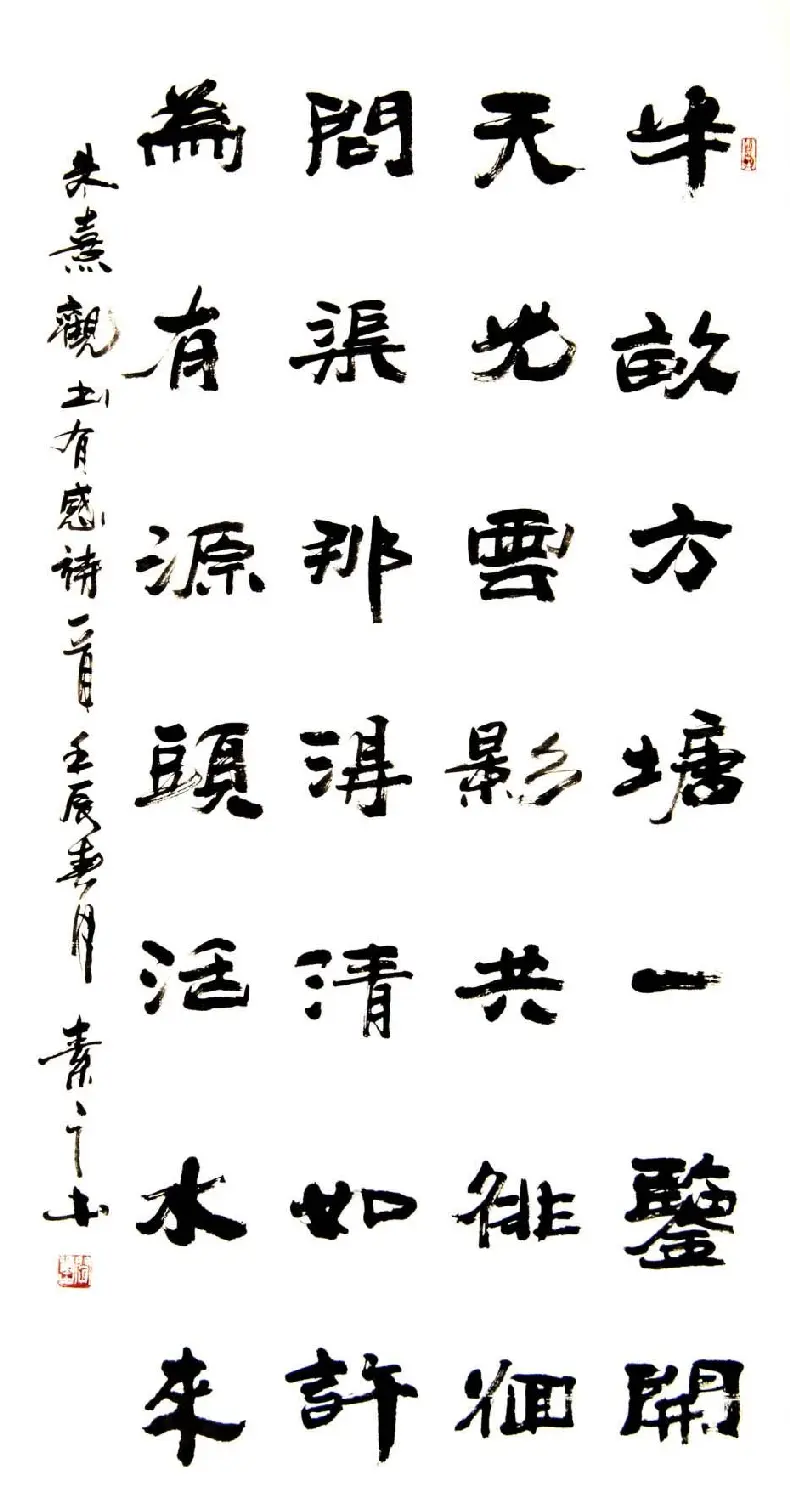 半畝方塘一鑒開
天光雲影共徘徊
問渠那得清如許
為有源頭活水來
朱熹觀书有感詩一首 壬辰春月 素之书